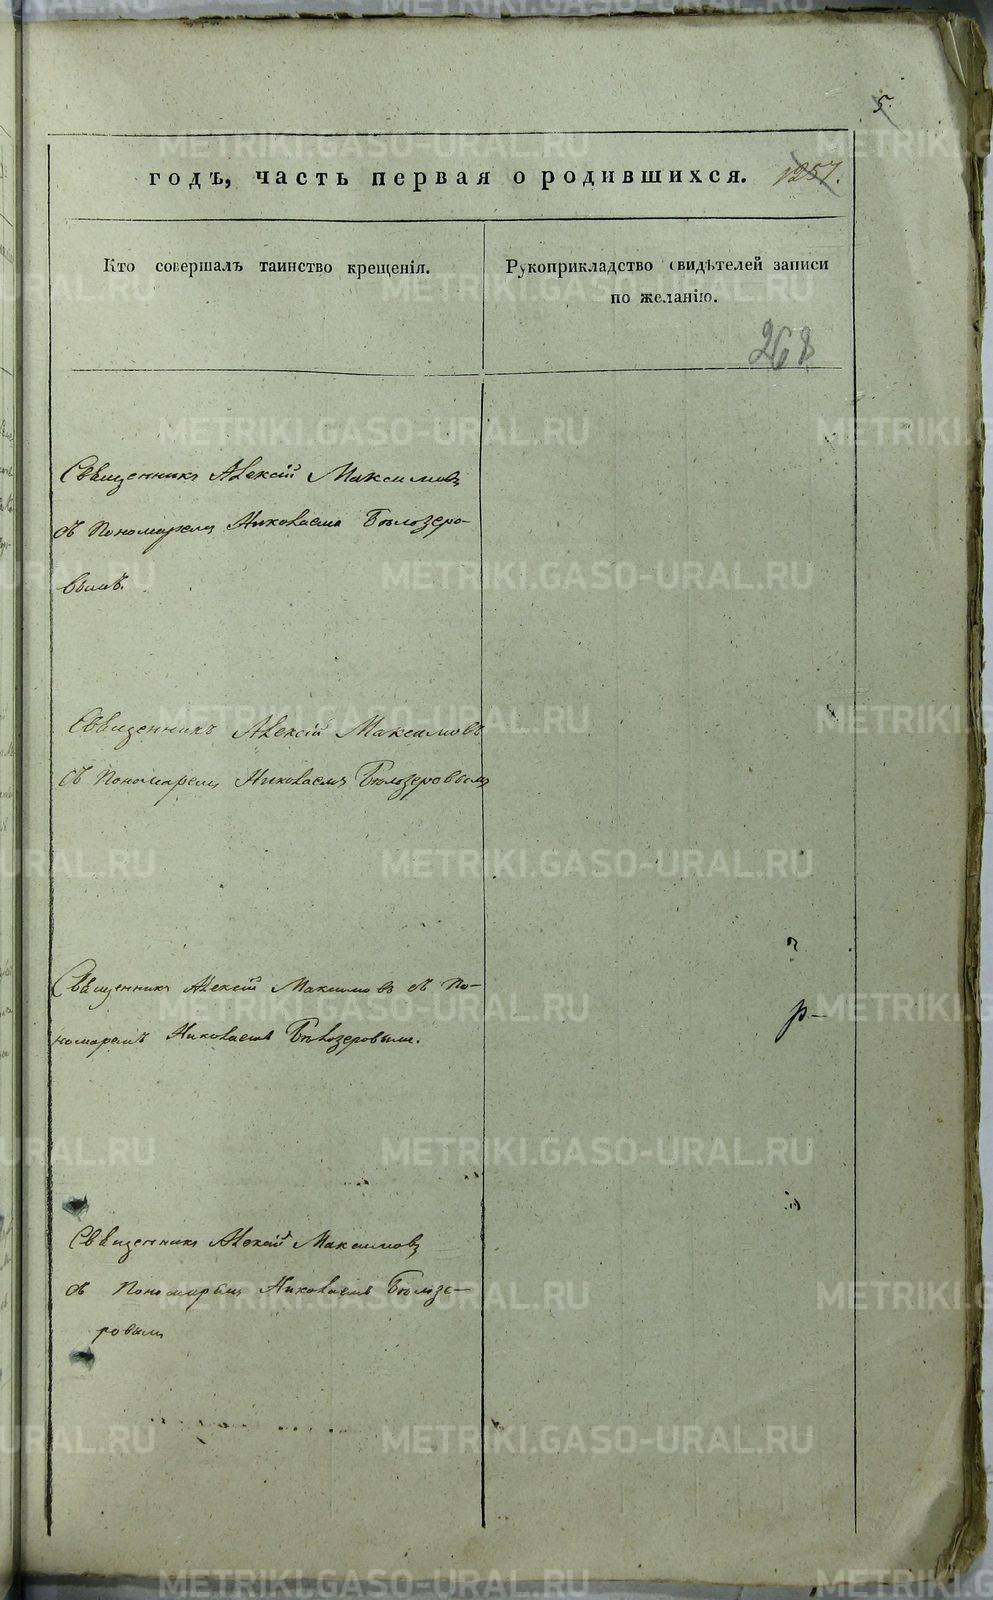 5.
годъ, часть первая о родившихся. 1257.
Кто совершалъ таинство крещенія.
Рукоприкладство свидѣтелей записи
по желанію.
268
Священникъ Алексій Максимовъ
съ Пономаремъ Николаемъ Бѣлозеро-
вымъ.
Священникъ Алексій Максимовъ
съ Пономаремъ Николаемъ Бѣлозеровымъ
Священникъ Алексій Максимовъ съ По-
номаремъ Николаемъ Бѣлозеровымъ.
Священникъ Алексій Максимовъ
съ Пономаремъ Николаемъ Бѣлозе-
ровымъ
METRIKI.GASO-URAL.RU